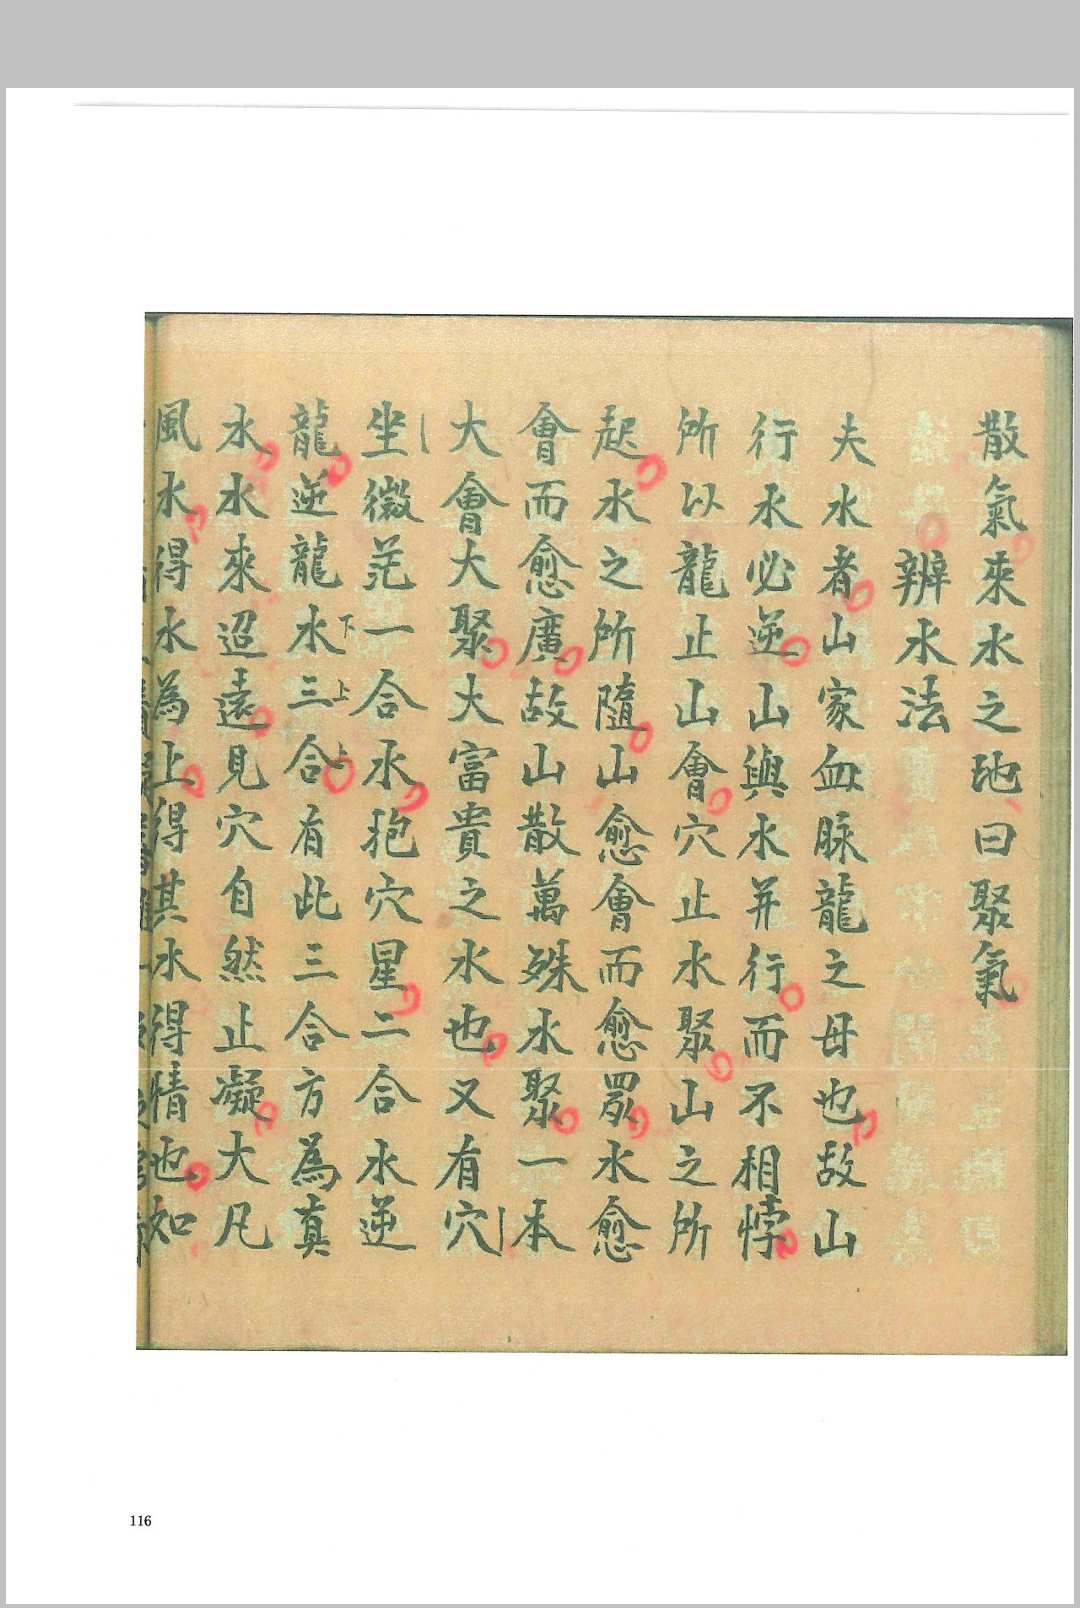 散氣來水之地曰聚氣
辨水法
夫水者山家血脉龍之母也故山
行水必逆山與水并行而不相悖
所以龍止山會穴止水聚山之所
起水之所隨山愈會而愈眾水愈
會而愈廣故山散萬殊水聚一本
大會大聚大富貴之水也又有穴
坐微茫一合水抱穴星二合水逆
龍逆龍水三合有此三合方為真
下上上
水水來迢遠見穴自然止凝大凡
風水得水為上得其水得情也如
116